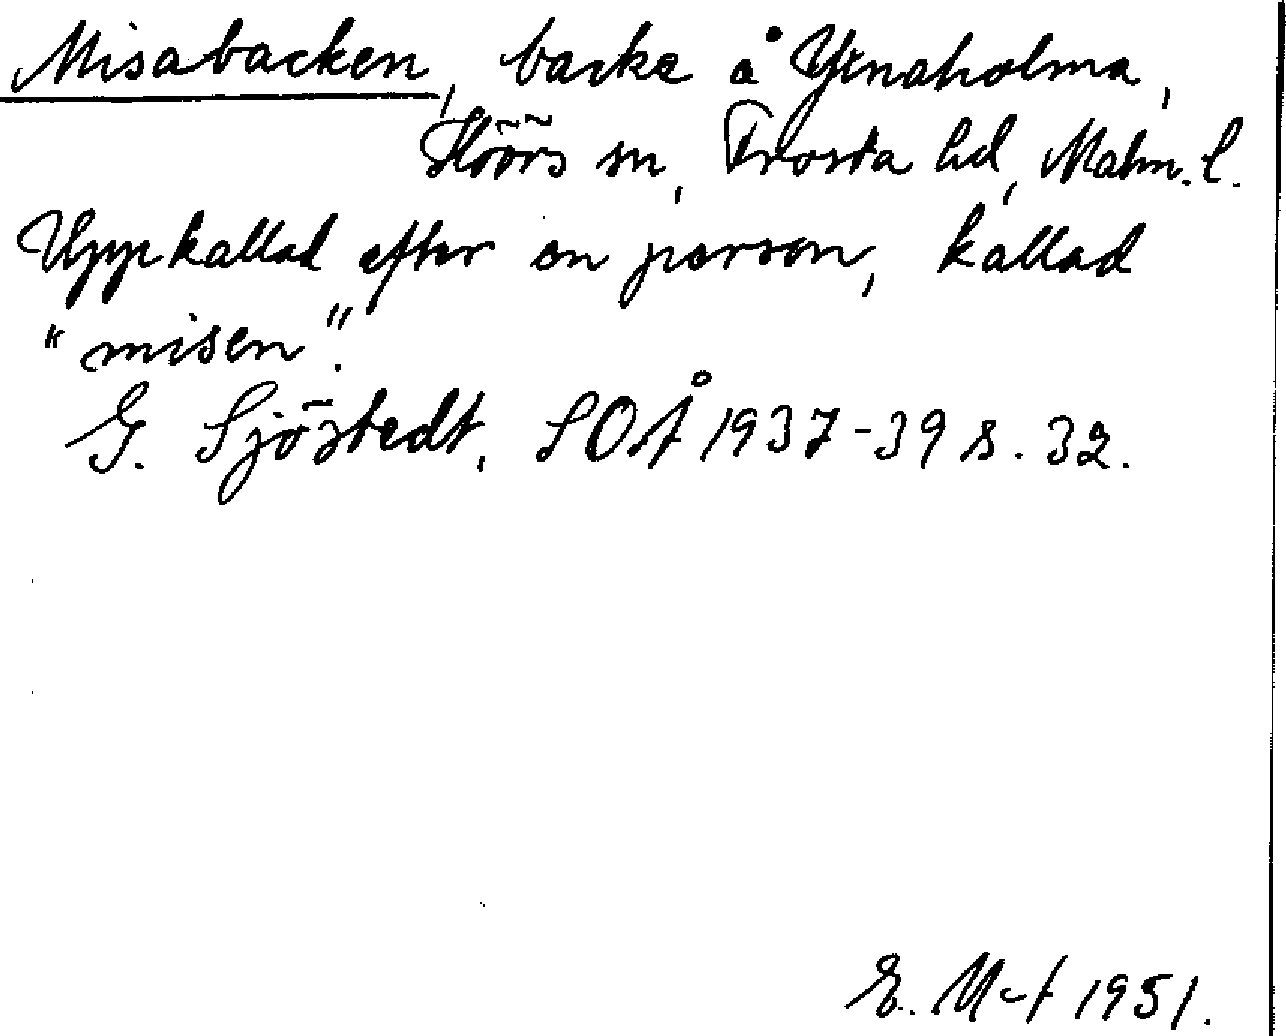 Misabacken, backe å Yxnaholma,
Höörs sn, Frosta hd, Malm. l.
Uppkallad efter en person, kallad
"misen".
G. Sjöstedt, SOÅ 1937-39 s. 32.
E. 1951.